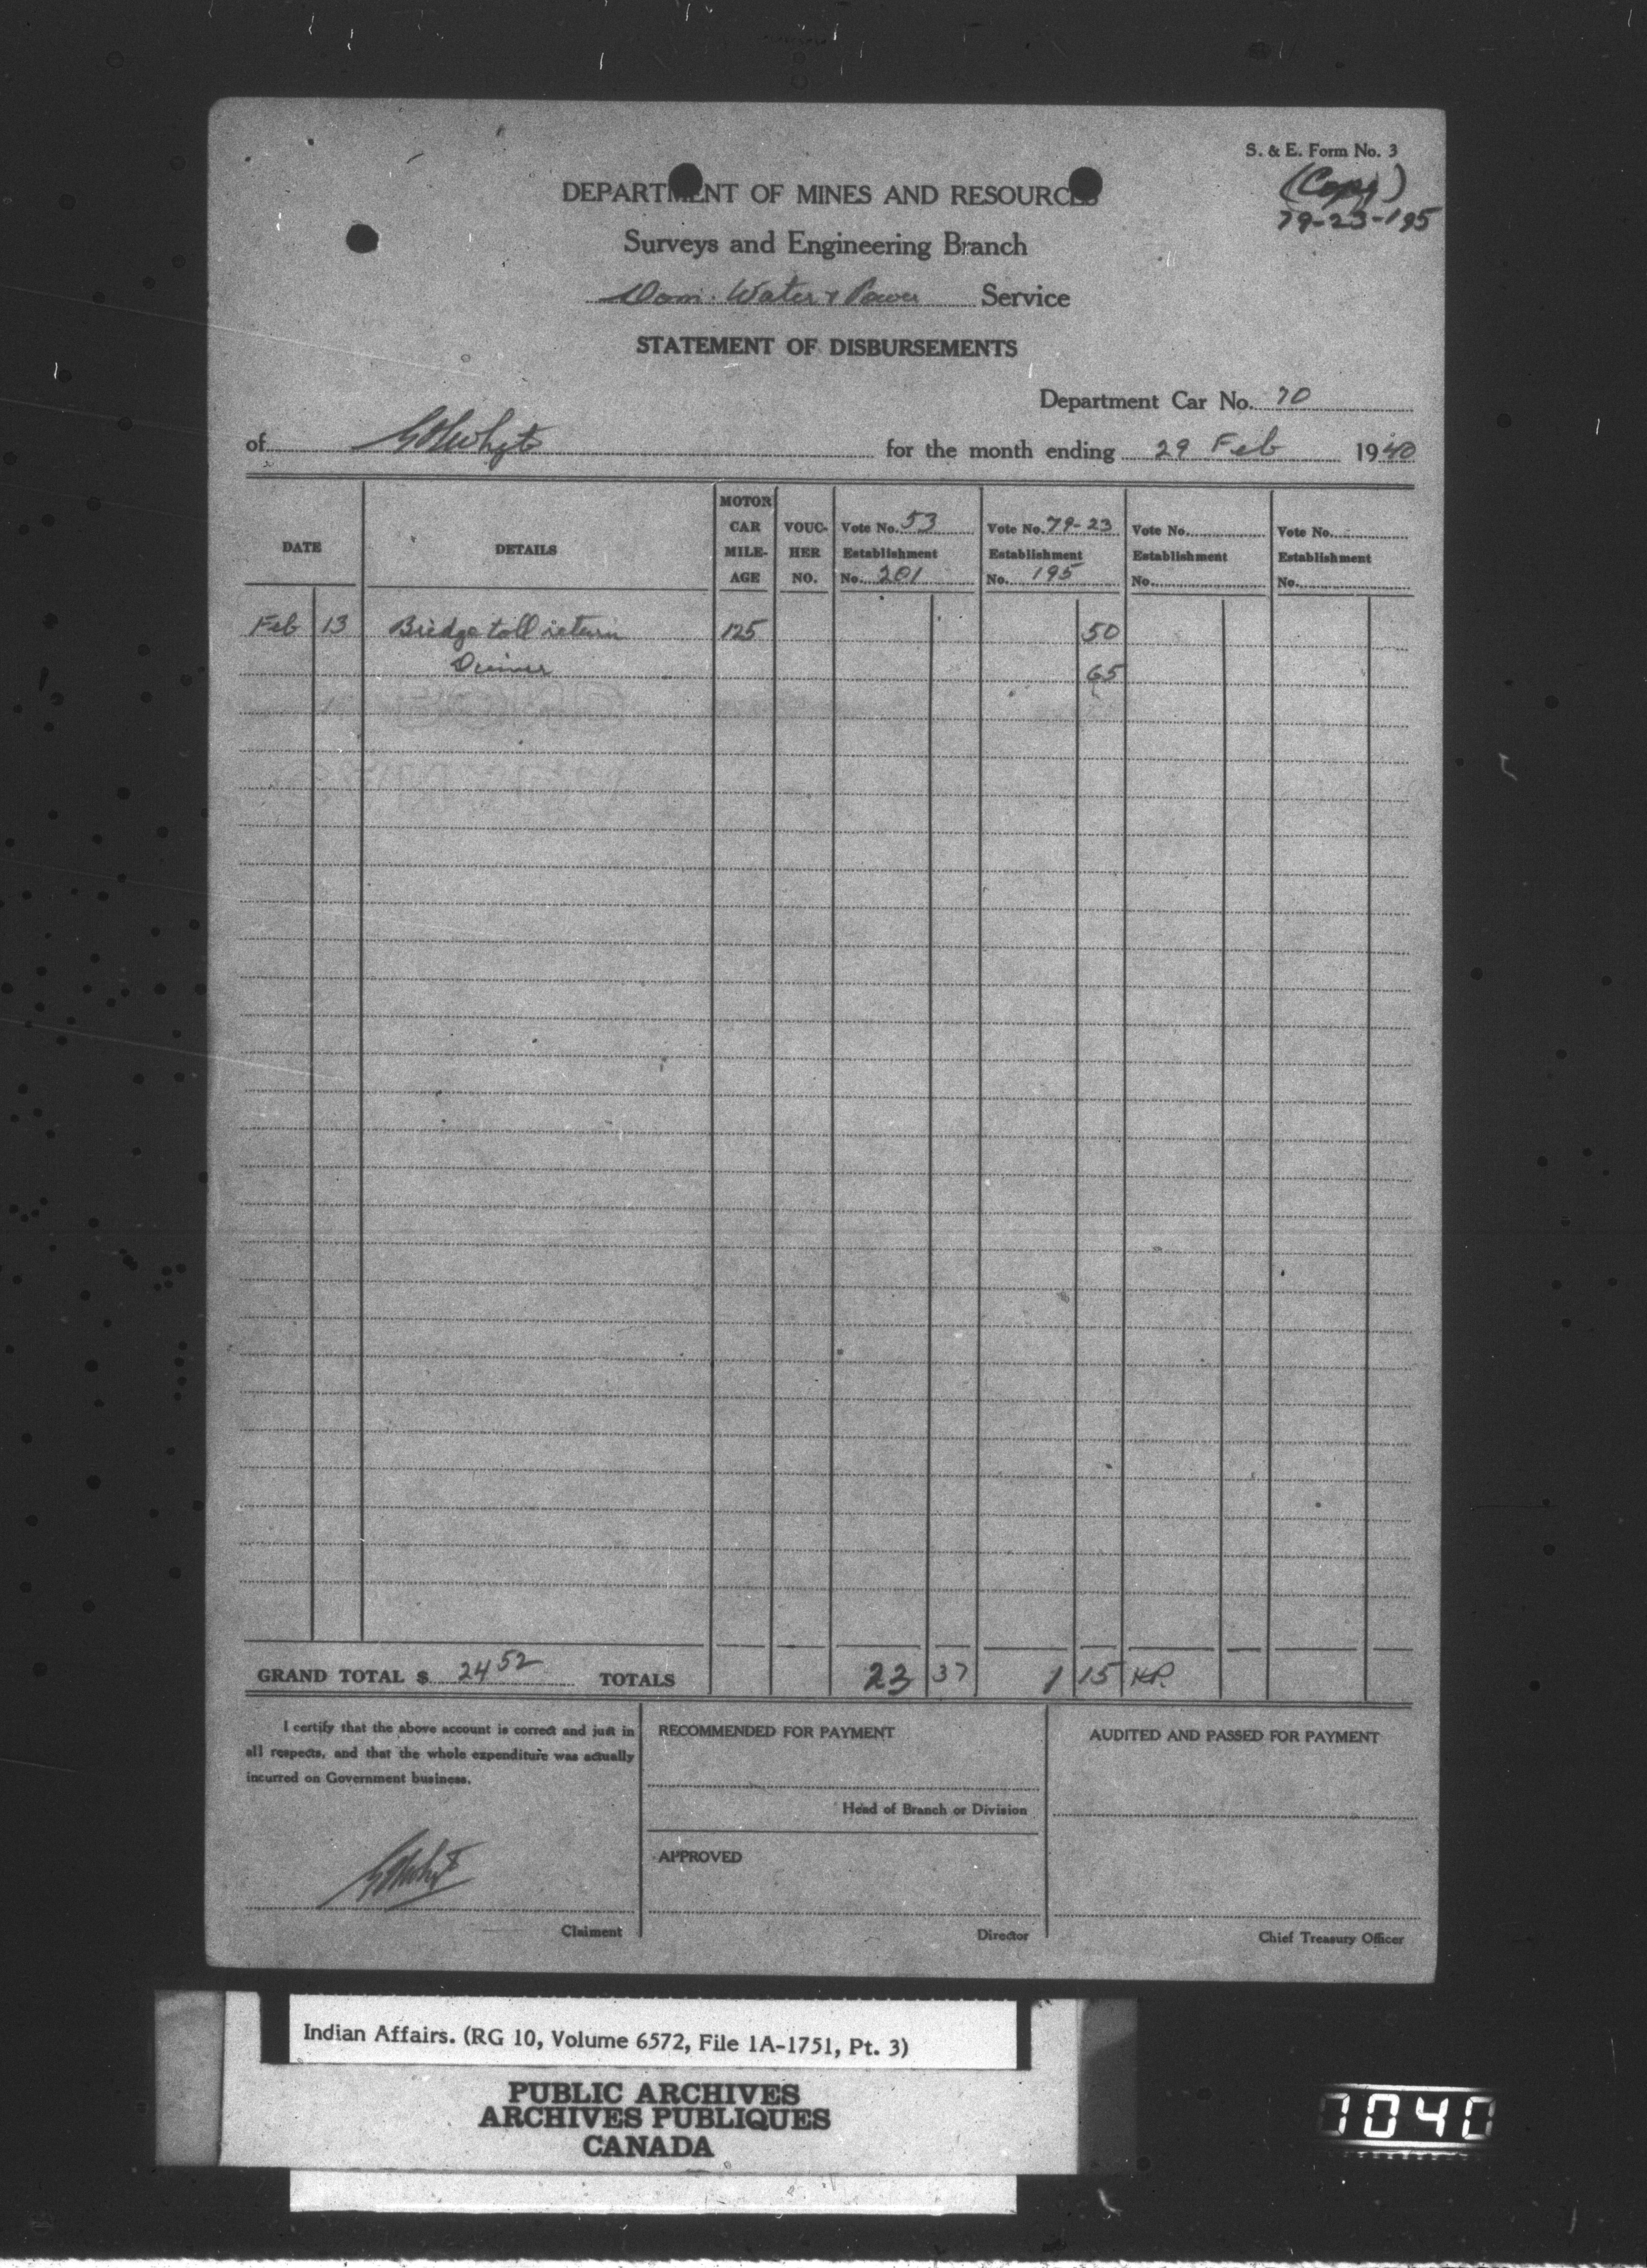 S. & E. Form No. 3
(Copy)
79-23-195
DEPARTMENT OF MINES AND RESOURCES
Surveys and Engineering Branch
Dom. Water & Power Service
STATEMENT OF DISBURSEMENTS
Department Car No. 70
of for the month ending 29 Feb 1940
DATE DETAILS MOTOR CAR MILE- AGE VOUC- HER NO. Vote No. 53 Establishment No. 201 Vote No. 79-23 Establishment No. 195 Vote No. Establishment No. Vote No. Establishment No.
Feb 13 Bridge toll return 125 50
Dinner 65
GRAND TOTAL $ 24 52 TOTALS 23 37 1 15 KP.
I certify that the above account is correct and just in
all respects, and that the whole expenditure was actually
incurred on Government business.
Claiment
RECOMMENDED FOR PAYMENT
Head of Branch or Division
APPROVED
Director
AUDITED AND PASSED FOR PAYMENT
Chief Treasury Officer
Indian Affairs. (RG 10, Volume 6572, File 1A-1751, Pt. 3)
PUBLIC ARCHIVES
ARCHIVES PUBLIQUES
CANADA
1040